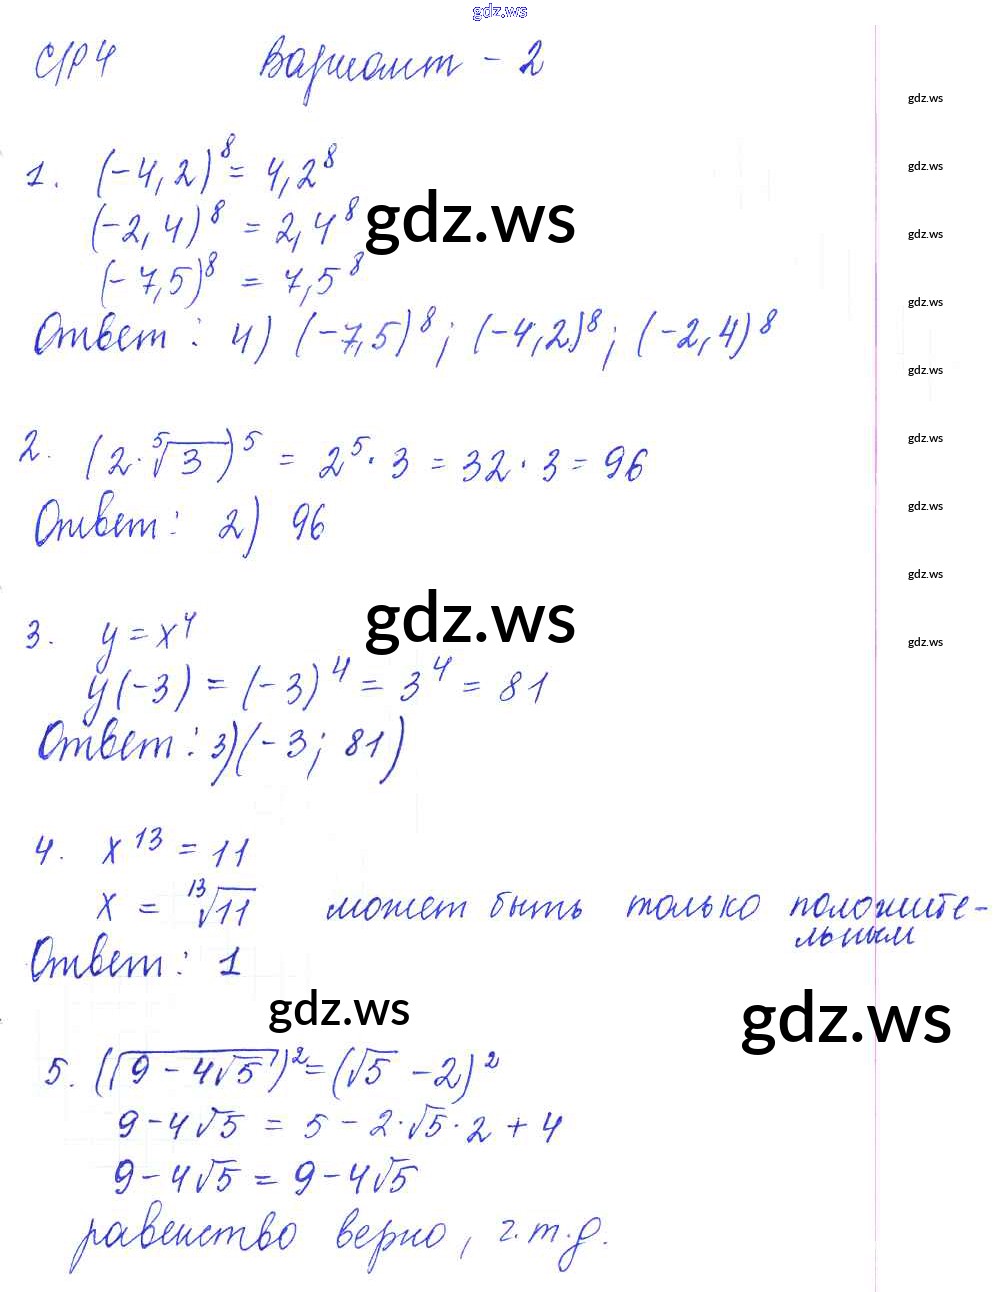 gdz.ws
С/Р 4 Вариант - 2
gdz.ws
1. (-4,2)⁸ = 4,2⁸
gdz.ws
(-2,4)⁸ = 2,4⁸
gdz.ws
gdz.ws
(-7,5)⁸ = 7,5⁸
gdz.ws
Ответ: 4) (-7,5)⁸; (-4,2)⁸; (-2,4)⁸
gdz.ws
2. (2·⁵√3)⁵ = 2⁵·3 = 32·3 = 96
gdz.ws
Ответ: 2) 96
gdz.ws
gdz.ws
gdz.ws
3. y = x⁴
gdz.ws
y(-3) = (-3)⁴ = 3⁴ = 81
Ответ: 3) (-3; 81)
4. x¹³ = 11
x = ¹³√11 может быть только положите-
льным
Ответ: 1
gdz.ws
gdz.ws
5. (√(9-4√5))² = (√5 - 2)²
9-4√5 = 5 - 2·√5·2 + 4
9-4√5 = 9-4√5
равенство верно, ч.т.д.